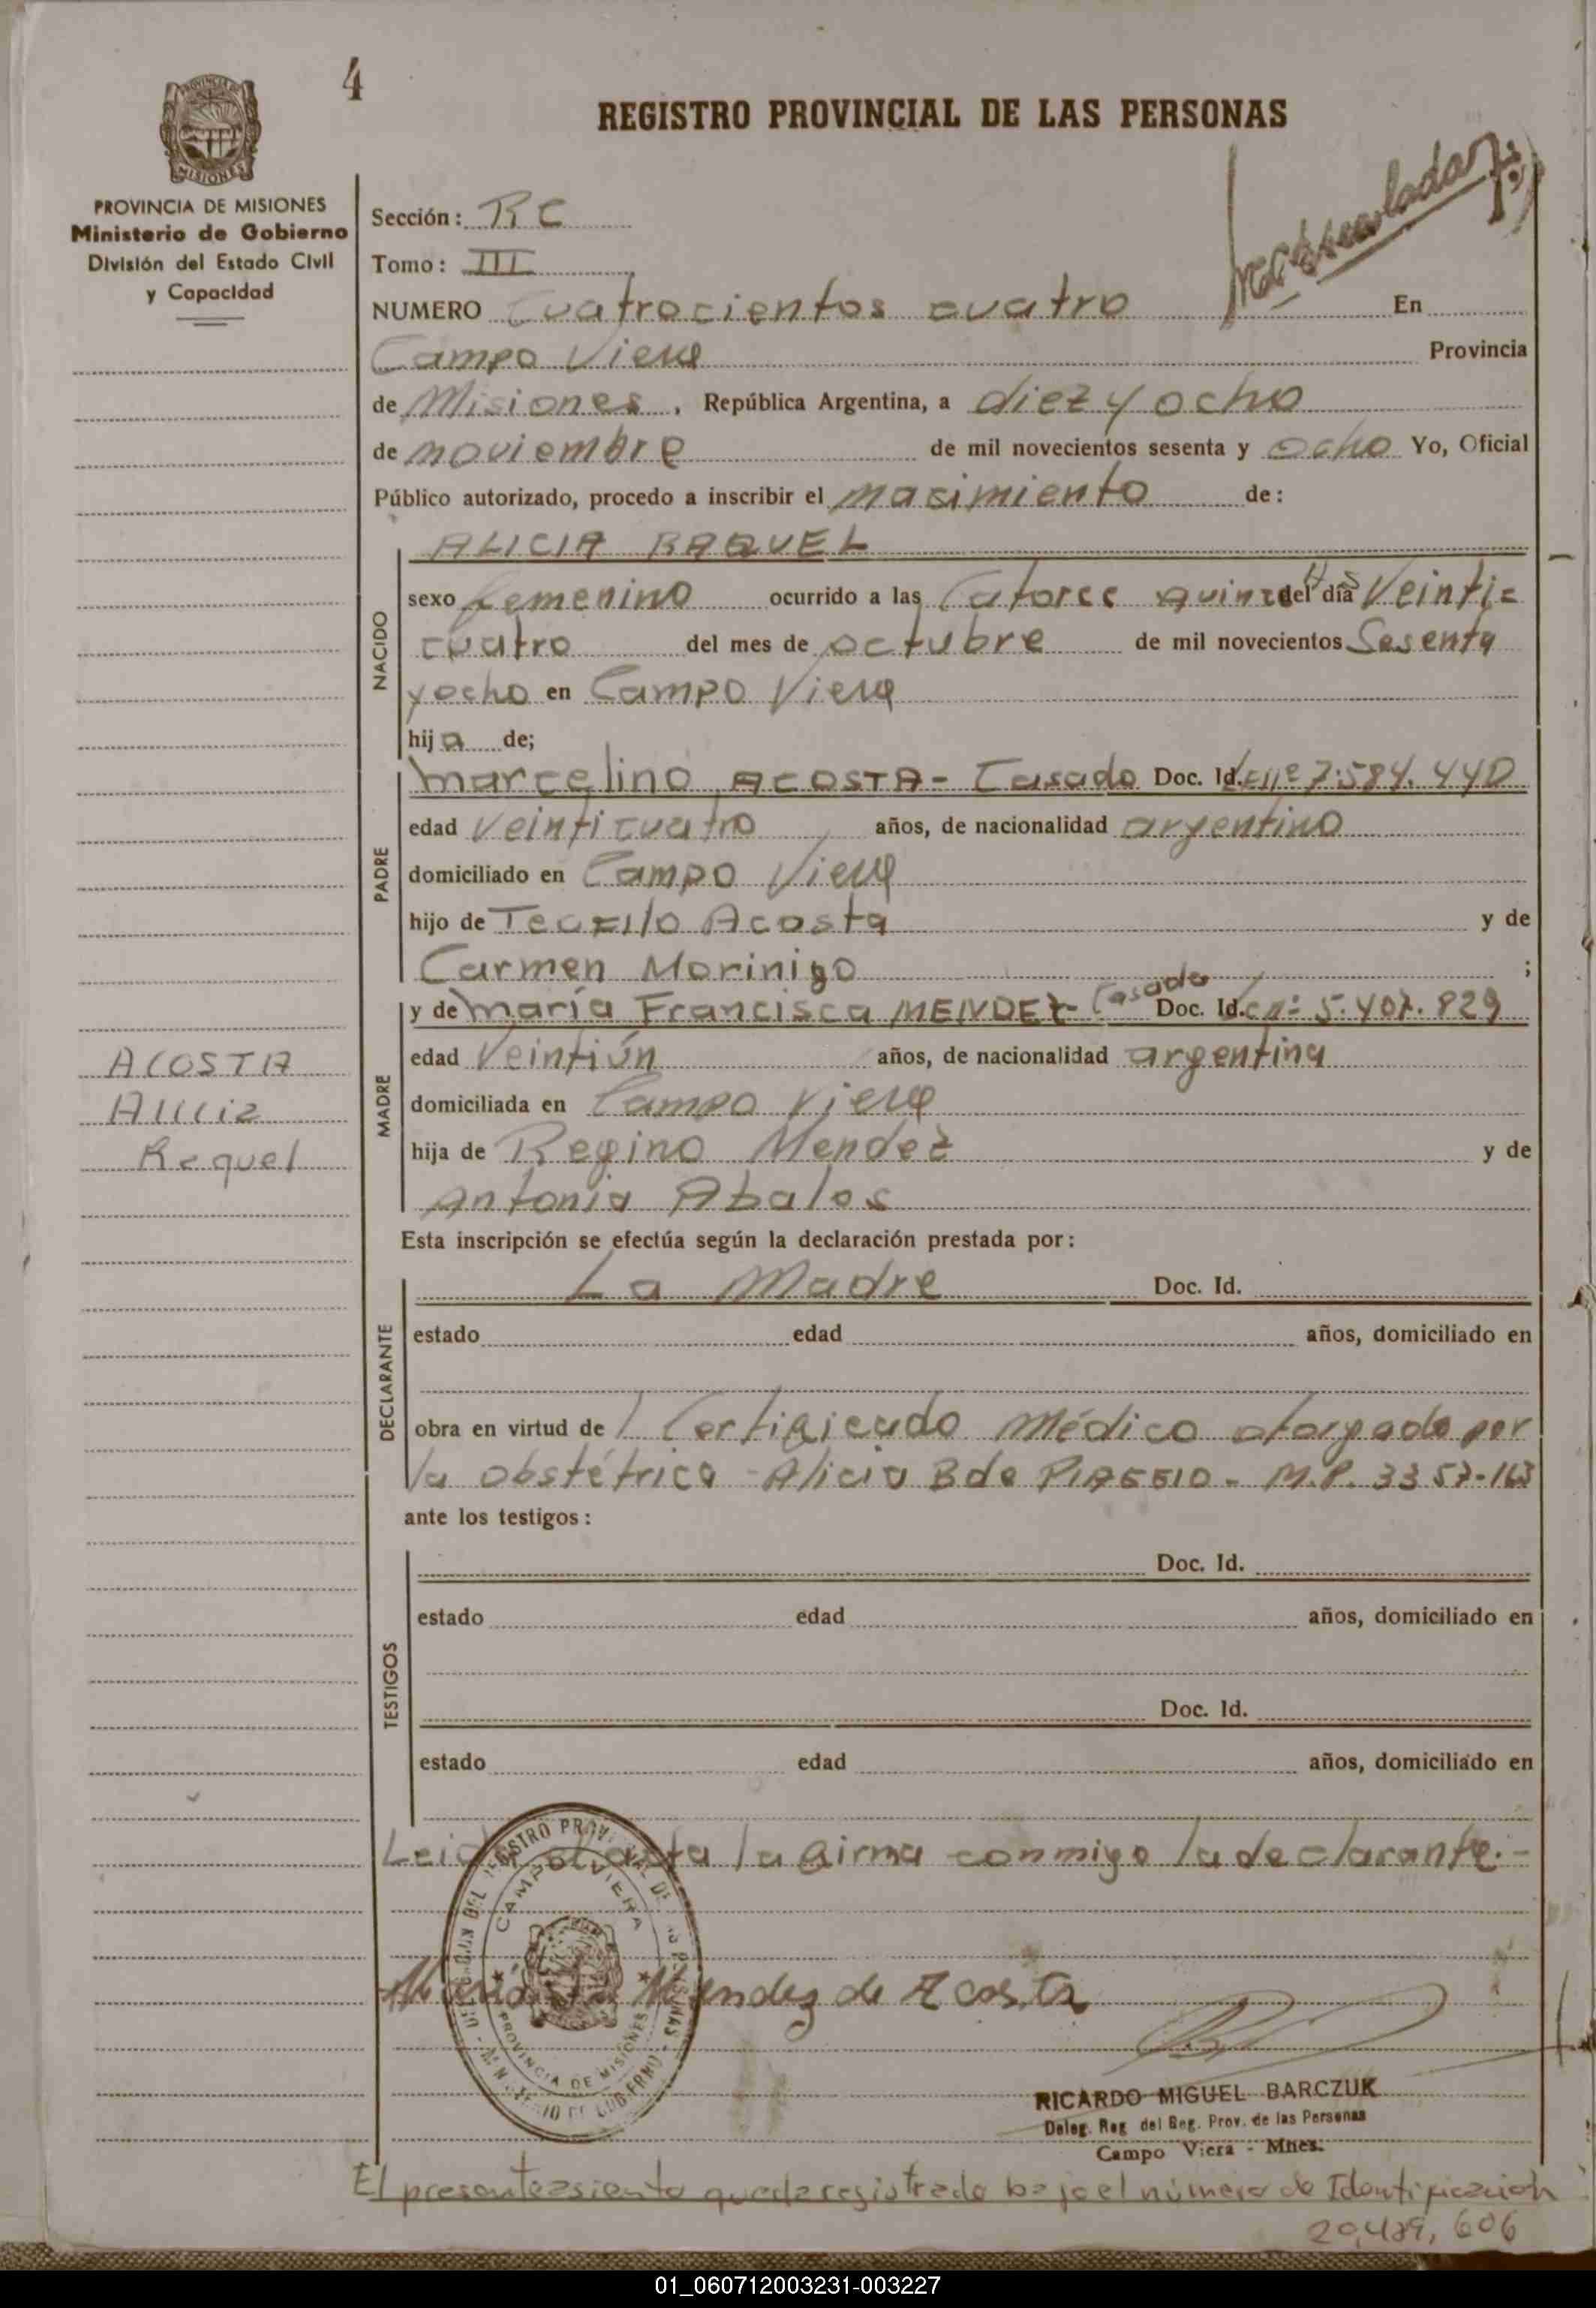 4
REGISTRO PROVINCIAL DE LAS PERSONAS
PROVINCIA DE MISIONES
Ministerio de Gobierno
División del Estado Civil
y Capacidad
Sección: RC
Tomo: III
NUMERO Cuatrocientos cuatro En
Campo Viera Provincia
de Misiones, República Argentina, a diez y ocho
de noviembre de mil novecientos sesenta y ocho Yo, Oficial
Público autorizado, procedo a inscribir el nacimiento de:
NACIDO
ALICIA RAQUEL
sexo femenino ocurrido a las Catorce quince Hs del día Veinti=
cuatro del mes de octubre de mil novecientos Sesenta
y ocho en Campo Viera
hija de;
PADRE
Marcelino ACOSTA - Casado Doc. Id. nº 7.584.440
edad Veinticuatro años, de nacionalidad argentino
domiciliado en Campo Viera
hijo de Teofilo Acosta y de
Carmen Morinigo ;
MADRE
y de María Francisca MENDEZ - Casada Doc. Id. 5.407.829
edad Veintiún años, de nacionalidad argentina
domiciliada en Campo Viera
hija de Regino Mendez y de
Antonia Abalos
ACOSTA
Alicia
Raquel
Esta inscripción se efectúa según la declaración prestada por:
DECLARANTE
La Madre Doc. Id.
estado edad años, domiciliado en
obra en virtud de Certificado Médico otorgado por
la obstétrica - Alicia B de - M.P. 3357-163
ante los testigos:
TESTIGOS
Doc. Id.
estado edad años, domiciliado en
Doc. Id.
estado edad años, domiciliado en
Leida el acta la firma conmigo la declarante.-
CAMPO VIERA
PROVINCIA DE MISIONES
Mendez de Acosta
RICARDO MIGUEL BARCZUK
Deleg. Reg del Reg. Prov. de las Personas
Campo Viera - Mnes.
El presente asiento queda registrado bajo el número de Identificación
20,489,606
01_060712003231-003227